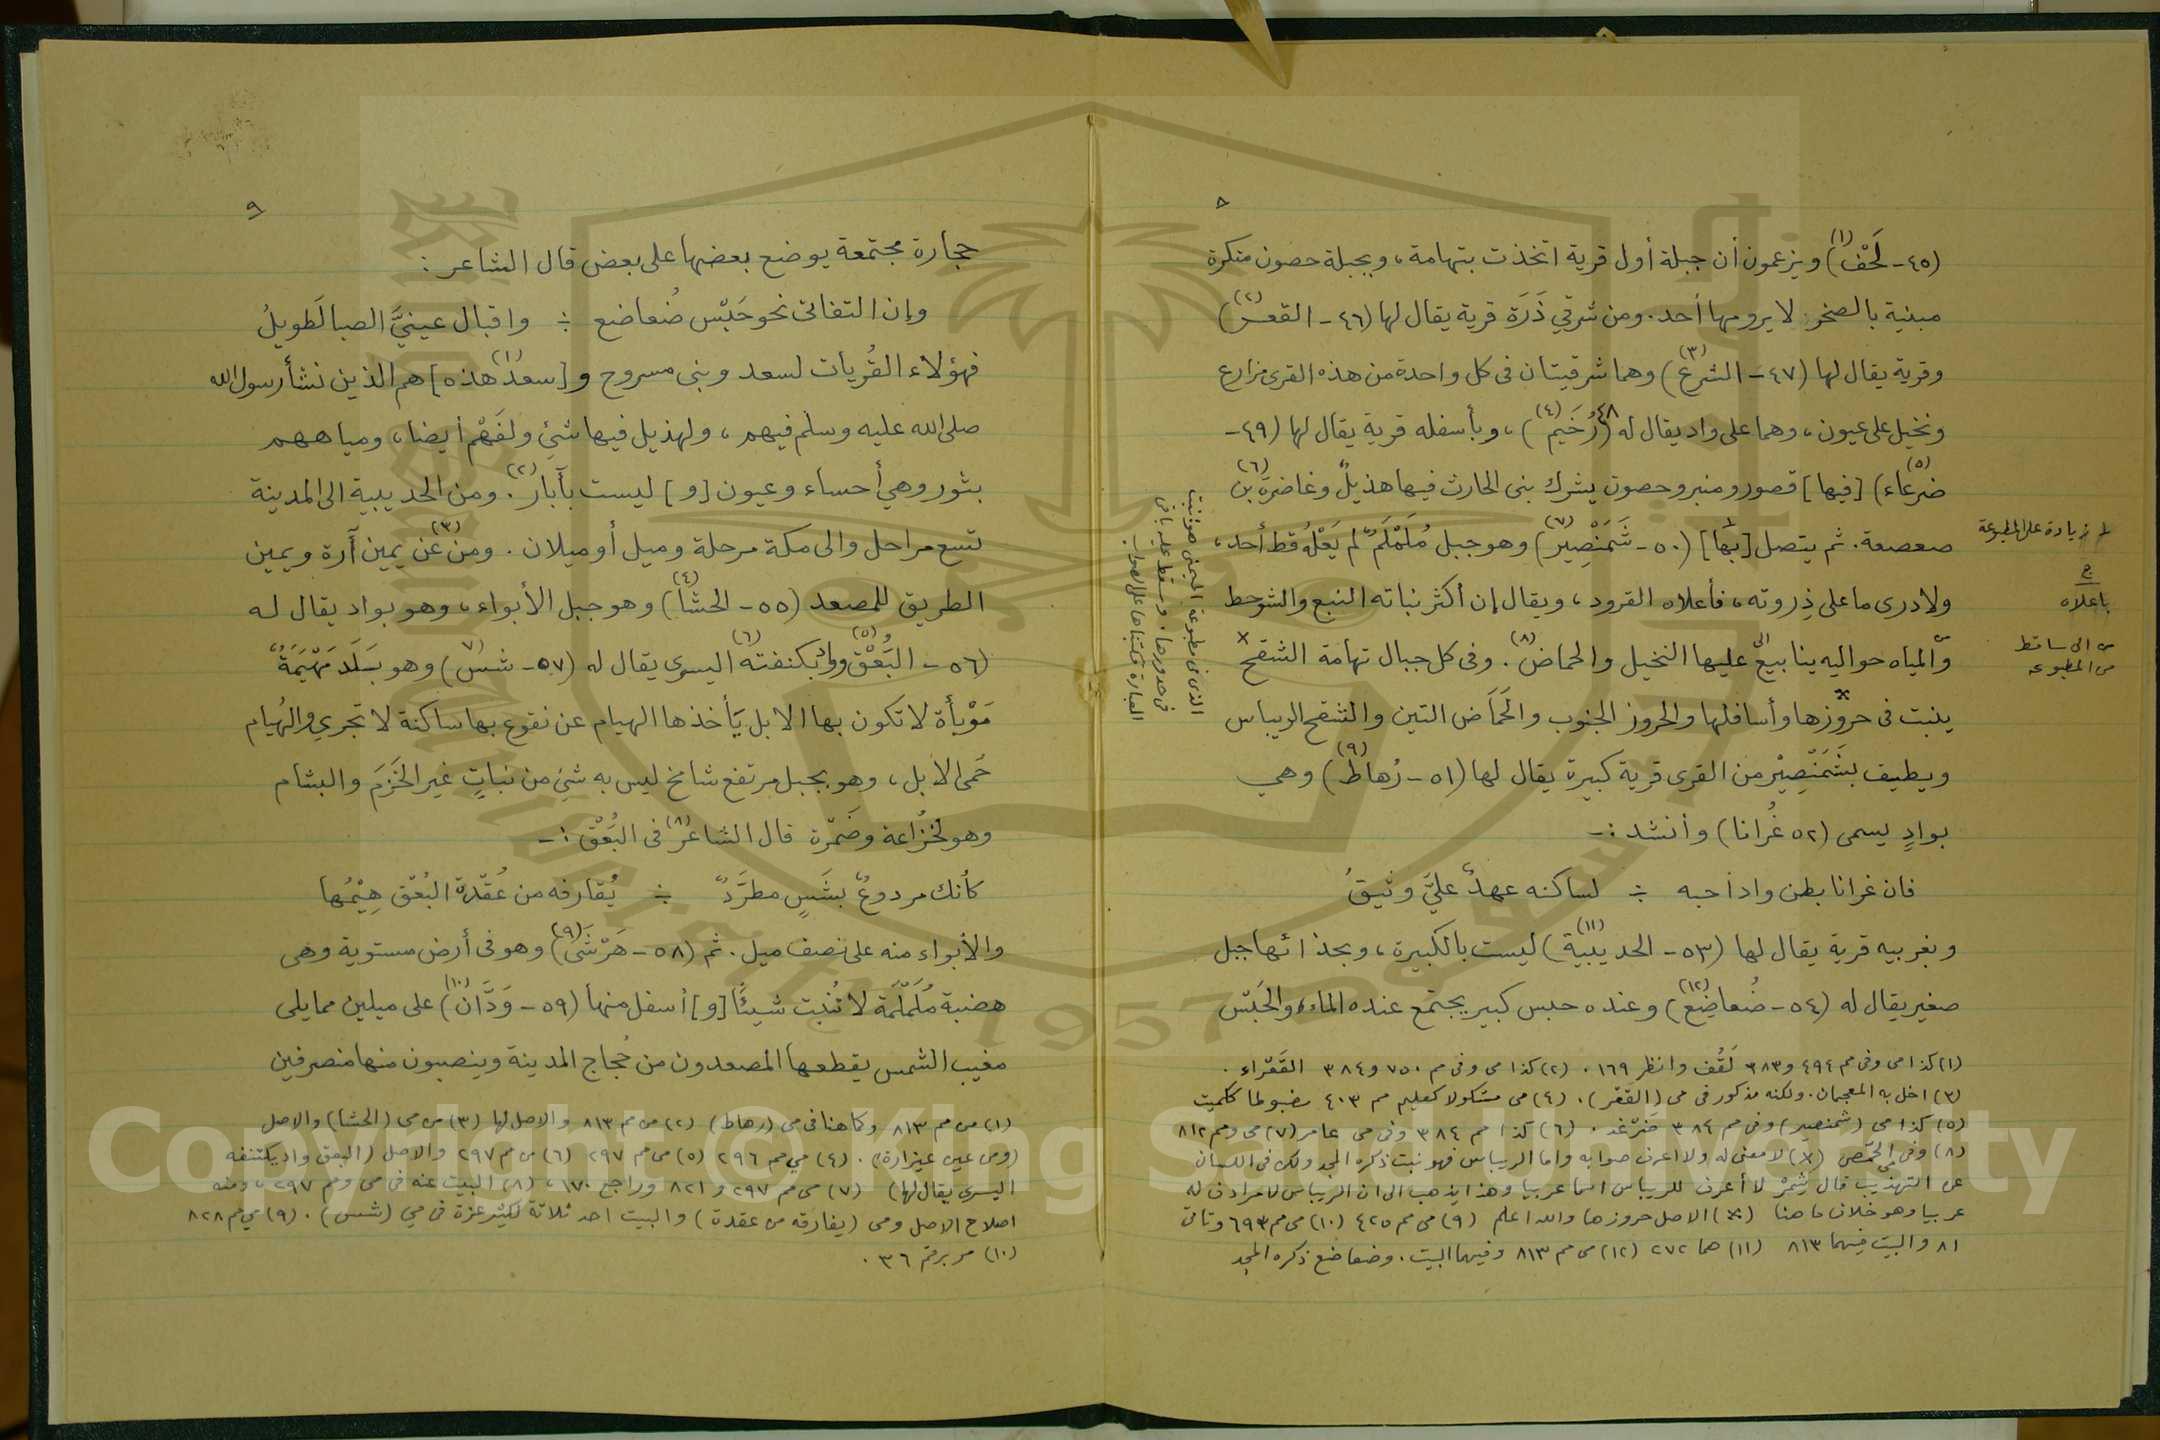 ٨
(٤٥- لَحْف(١)) ويزعمون أن جبلة أول قرية اتخذت بتهامة، وبجبلة حصون منكرة
مبنية بالصخر لا يرومها أحد. ومن شرقي ذَرَة قرية يقال لها (٤٦- القعر(٢))
وقرية يقال لها (٤٧- الشرع(٣)) وهما شرقيتان فى كل واحدة من هذه القرى مزارع
ونخيل على عيون، وهما على واد يقال له (٤٨ رُخَيم(٤))، وبأسفله قرية يقال لها (٤٩-
ضرعاء(٥)) [فيها] قصور ومنبر وحصون يشرك بنى الحارث فيها هذيلٌ وغاضرة(٦) بن
صعصعة. ثم يتصل [بها] (٥٠- شَمَنْصِير(٧)) وهو جبل مُلَمْلَمٌ لم يَعْلُه قط أحد،
ولا درى ما على ذِروته، فأعلاه القرود، ويقال إن أكثر نباته النبع والشوحط
والمياه حواليه ينابيع عليها النخيل والحماض(٨). وفى كل جبال تهامة الشقح
ينبت فى حروزها وأسافلها والحروز الجنوب والحَمَاض التين والشقح الريباس
ويطيف بشَمَنْصِيْر من القرى قرية كبيرة يقال لها (٥١- رُهاط(٩)) وهي
بوادٍ يسمى (٥٢ غُرانا) وأنشد :-
فان غرانا بطن واد أحبه ÷ لساكنه عهدٌ عليَّ وثيقُ
وبغربيه قرية يقال لها (٥٣- الحديبية(١١)) ليست بالكبيرة، وبحذائها جبل
صغير يقال له (٥٤- ضُعاضِع(١٢)) وعنده حبس كبير يجتمع عنده الماء، والحَبْس
(١) كذا مى وفى مم ٤٩٤ و ٣٨٣ لَقْف وانظر ١٦٩. (٢) كذا مى وفى مم ٧٥٠ و ٣٨٤ القَعْراء.
(٣) اخل به المعجمان. ولكنه مذكور فى مى (القعر). (٤) مى مشكولا كعليم مم ٤٠٣ مضبوطا ككميت
(٥) كذا مى (شمنصير) وفى مم ٣٨٤ ضَرْغد. (٦) كذا مم ٣٨٤ وفى مى عامر (٧) مى ومم ٨١٢
(٨) وفى مى الحمص (×) لا معنى له ولا اعرف صوابه واما الريباس فهو نبت ذكره المجد ولكن فى اللسان
عن التهذيب قال شمر لا أعرف للريباس اسما عربيا وهذا يذهب الى ان الريباس لا مرادف له
عربيا وهو خلاف ما هنا (※) الاصل حروزها والله اعلم (٩) مى مم ٤٢٥ (١٠) مى مم ٦٩٣ وتأتى
٨١ والبيت فيهما ٨١٣ (١١) هما ٢٧٢ (١٢) مى مم ٨١٣ وفيهما البيت. وضعاضع ذكره المجد
زيادة على المطبوعة
باعلاه
الى ساقط
من المطبوعة
٩
حجارة مجتمعة يوضع بعضها على بعض قال الشاعر :
وإن التفاتى نحو حَبْس ضُعاضع ÷ واقبال عينيَّ الصبا لَطويلُ
فهؤلاء القُريات لسعد وبنى مسروح و[سعد(١) هذه] هم الذين نشأ رسول الله
صلى الله عليه وسلم فيهم، ولهذيل فيها شئ ولفَهْم أيضا، ومياههم
بثور وهي أحساء وعيون [و] ليست بآبار(٢). ومن الحديبية الى المدينة
تسع مراحل والى مكة مرحلة وميل أو ميلان. ومن عن(٣) يمين آرة ويمين
الطريق للمصعد (٥٥- الحشا(٤)) وهو جبل الأبواء، وهو بواد يقال له
(٥٦- البُعْق(٥) وواد بكنفته(٦) اليسرى يقال له (٥٧- شس(٧)) وهو بَلَد مَهْيَمَةٌ
مَوْبأة لا تكون بها الابل يأخذها الهيام عن نقوع بها ساكنة لا تجري والهُيام
حُمى الابل، وهو بجبل مرتفع شامخ ليس به شئ من نباتٍ غير الخَزَمَ والبشام
وهو لخزاعة وضَمرة قال الشاعر(٨) فى البُعْق :-
كأنك مردوعٌ بشَسٍ مطرَّدٌ ÷ يُقارفه من عُقْدة البُعْق هِيْمُها
والأبواء منه على نصف ميل. ثم (٥٨- هَرْشَى(٩)) وهو فى أرض مستوية وهى
هضبة مُلَمْلَمَة لا تُنبت شيئًا [و] أسفل منها (٥٩- وَدَّان(١٠)) على ميلين مما يلى
مغيب الشمس يقطعها المصعدون من حُجاج المدينة وينصبون منها منصرفين
(١) مى مم ٨١٣ وكما هنا فى مى (رهاط) (٢) مى مم ٨١٣ والاصل لها (٣) مى (الحشا) والاصل
(ومن عيره عيزارة). (٤) مي مم ٢٩٦ (٥) مى مم ٢٩٧ (٦) مى مم ٢٩٧ والاصل (البعق واد يكتنفه
اليسرى يقال لها) (٧) مى مم ٢٩٧ و ٨٢١ وراجع ١٧٠، (٨) البيت عنه فى مى ومم ٢٩٧، ومنه
اصلاح الاصل ومى (يفارقه من عقدة) والبيت احد ثلاثة لكثير عزة فى مي (شس). (٩) مي مم ٨٢٨
(١٠) مر برقم ٣٦.
Copyright © King Saud University
1957